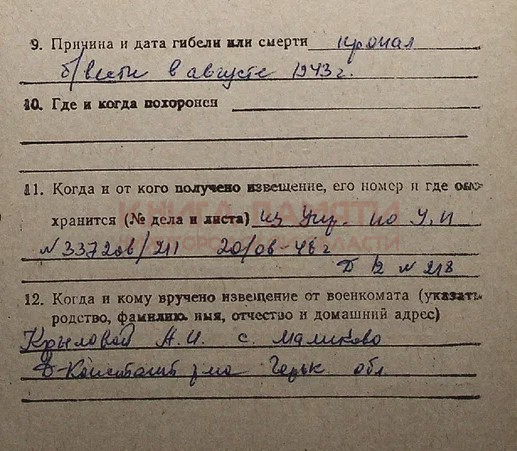 9. Причина и дата гибели или смерти пропал
б/вести в августе 1943 г.
10. Где и когда похоронен
11. Когда и от кого получено извещение, его номер и где
хранится (№ дела и листа) из Упр. по У, П
КНИГА ПАМЯТИ
ОБЛАСТИ
N 33720в/211 20/08-46 г
Д 12 N 218
12. Когда и кому вручено извещение от военкомата (указать
родство, фамилию, имя, отчество и домашний адрес)
Крыловой А.И. с. Мамиково
Д-Констант р-на Горьк. обл